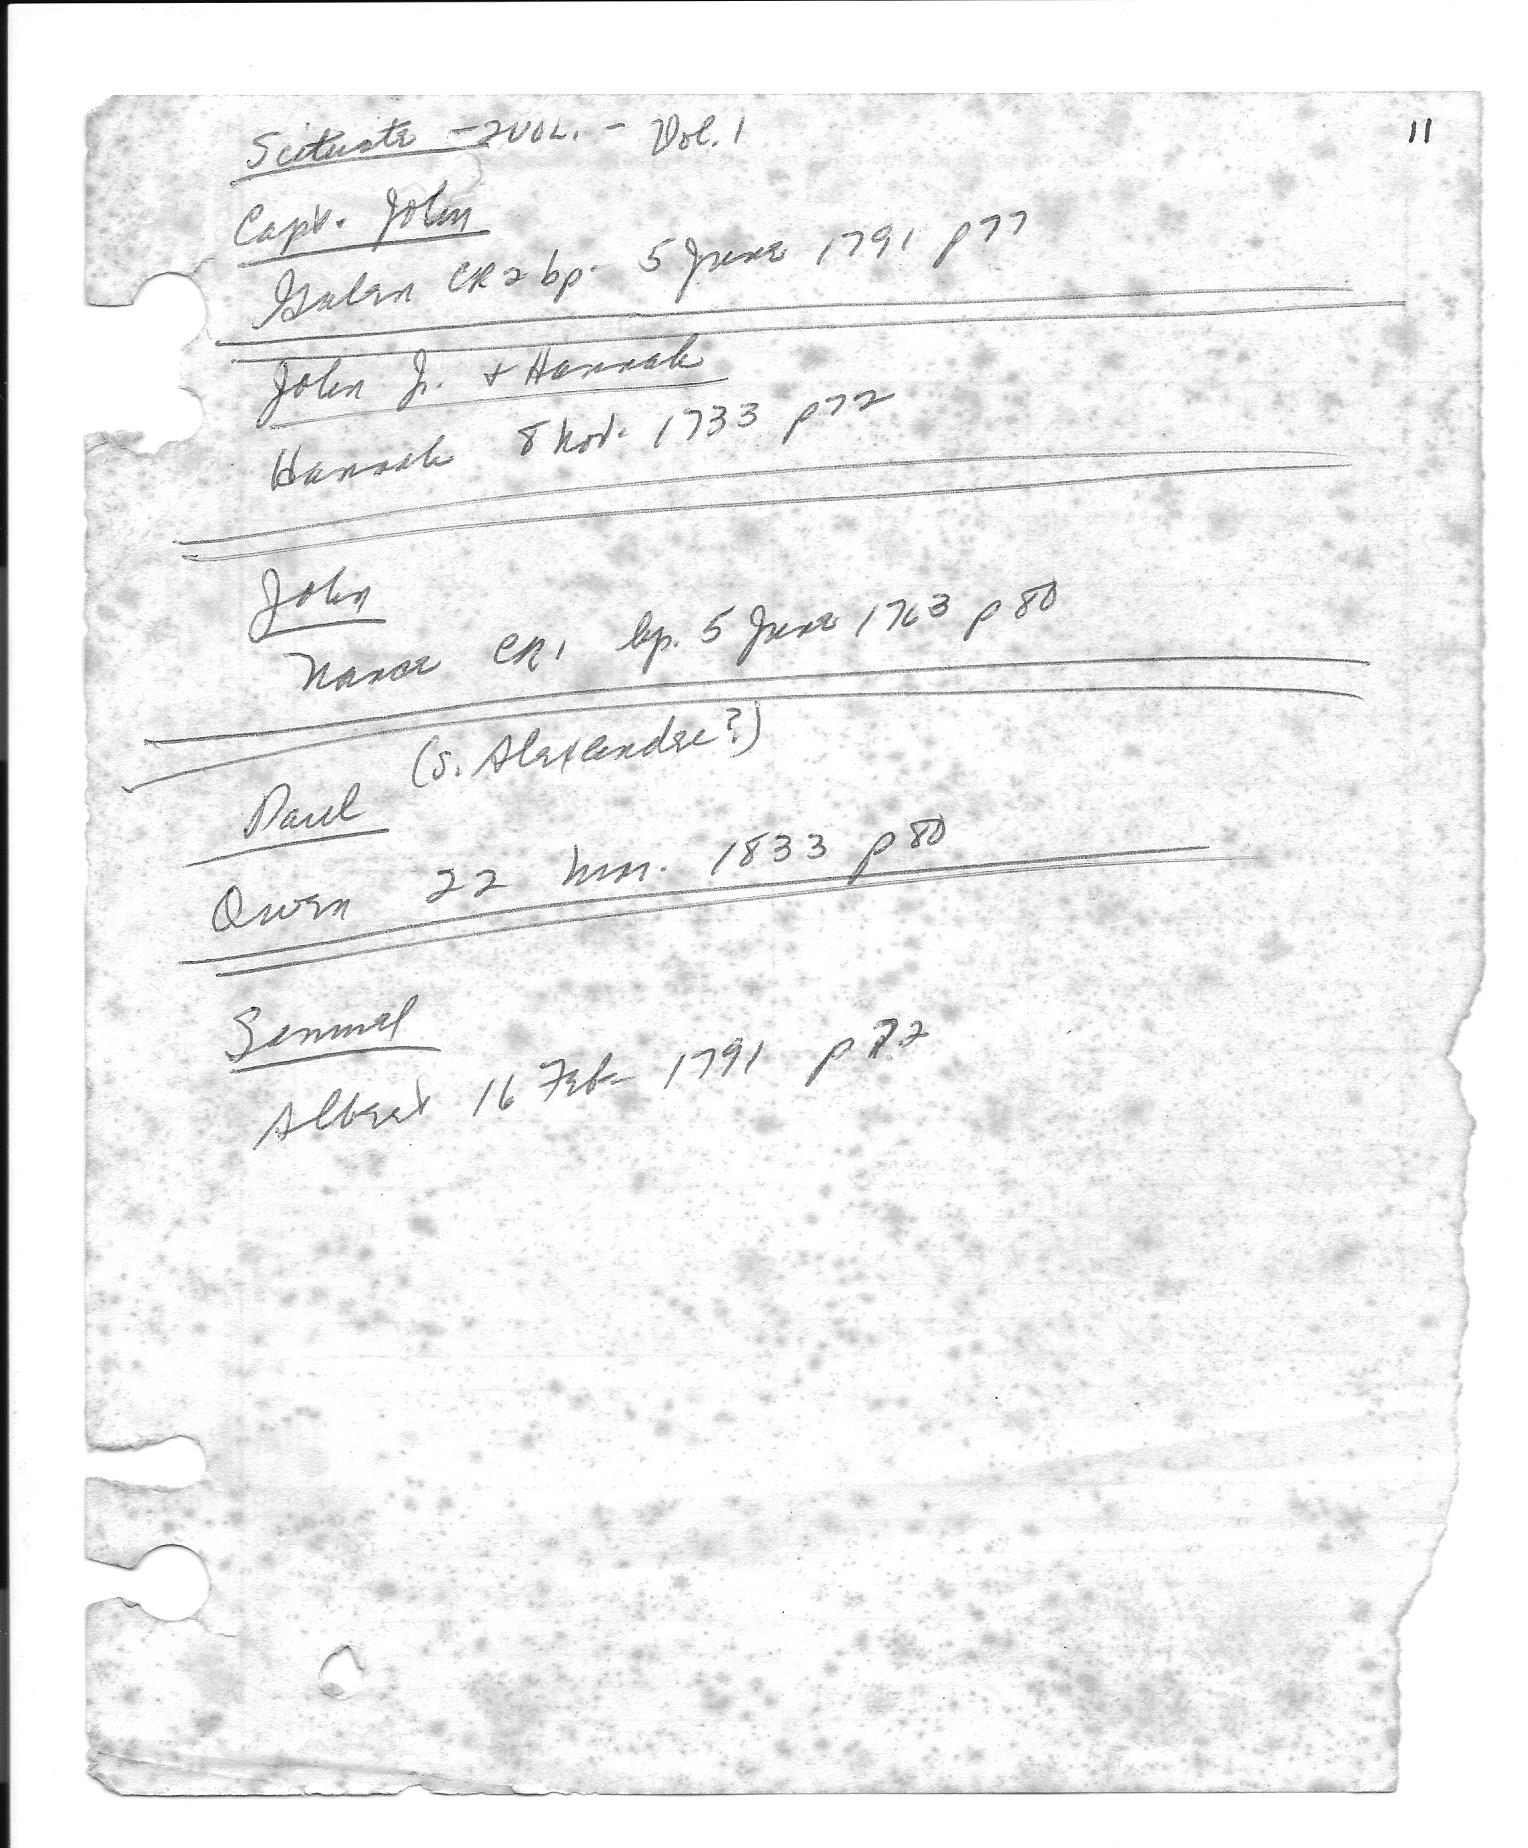 11
Scituate - 2 VOL. - Vol. 1
Capt. John
Galen CR2 bp. 5 June 1791 p77
John Jr. + Hannah
Hannah 8 Nov. 1733 p72
John
Nance CR1 bp. 5 June 1763 p80
(s. Alexander?)
Paul
Owen 22 1833 p80
Samuel
Albert 16 Feb. 1791 p72